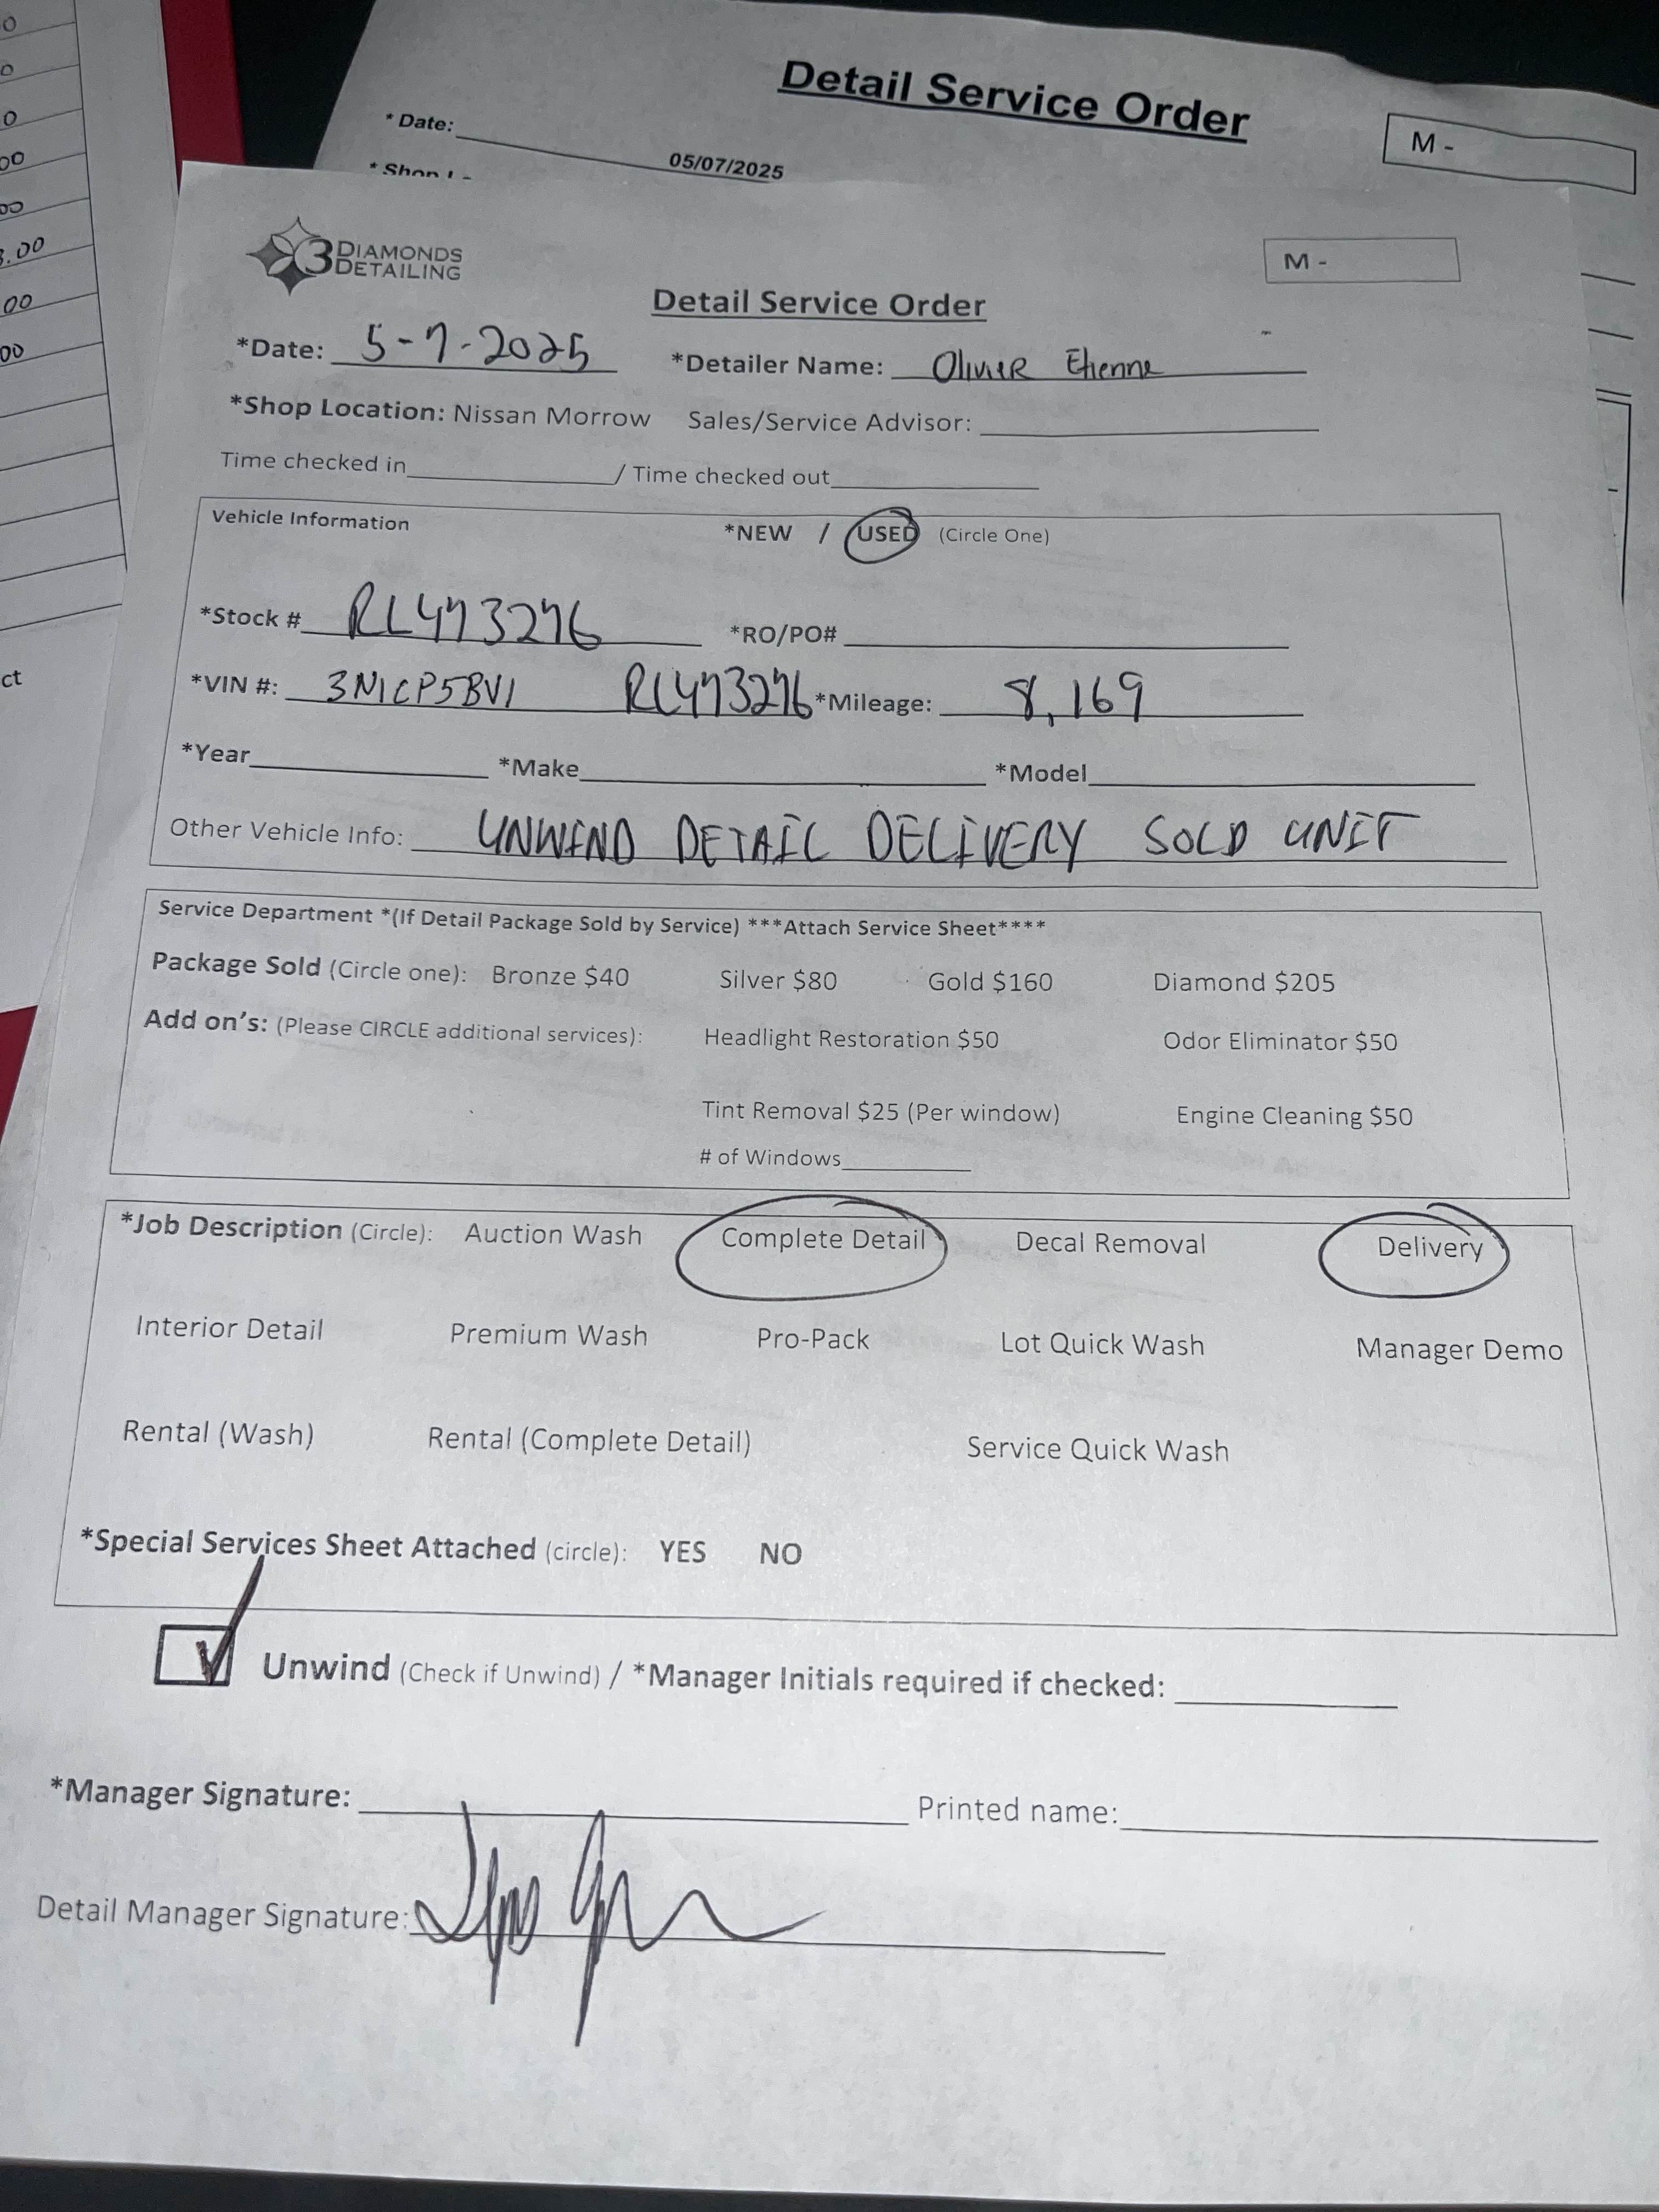 0
0
0
00
00
3.00
00
00
ct
Detail Service Order
* Date: 05/07/2025
M -
3 DIAMONDS
DETAILING
M -
Detail Service Order
*Date: 5-7-2025 *Detailer Name: OliviER Etienne
*Shop Location: Nissan Morrow Sales/Service Advisor:
Time checked in / Time checked out
Vehicle Information *NEW / USED (Circle One)
*Stock # RL473276 *RO/PO#
*VIN #: 3N1CP5BV1 RL473276 *Mileage: 8,169
*Year *Make *Model
Other Vehicle Info: UNWIND DETAIL DELIVERY SOLD UNIT
Service Department *(If Detail Package Sold by Service) ***Attach Service Sheet****
Package Sold (Circle one): Bronze $40 Silver $80 Gold $160 Diamond $205
Add on's: (Please CIRCLE additional services): Headlight Restoration $50 Odor Eliminator $50
Tint Removal $25 (Per window) Engine Cleaning $50
# of Windows
*Job Description (Circle): Auction Wash Complete Detail Decal Removal Delivery
Interior Detail Premium Wash Pro-Pack Lot Quick Wash Manager Demo
Rental (Wash) Rental (Complete Detail) Service Quick Wash
*Special Services Sheet Attached (circle): YES NO
Unwind (Check if Unwind) / *Manager Initials required if checked:
*Manager Signature: Printed name:
Detail Manager Signature: